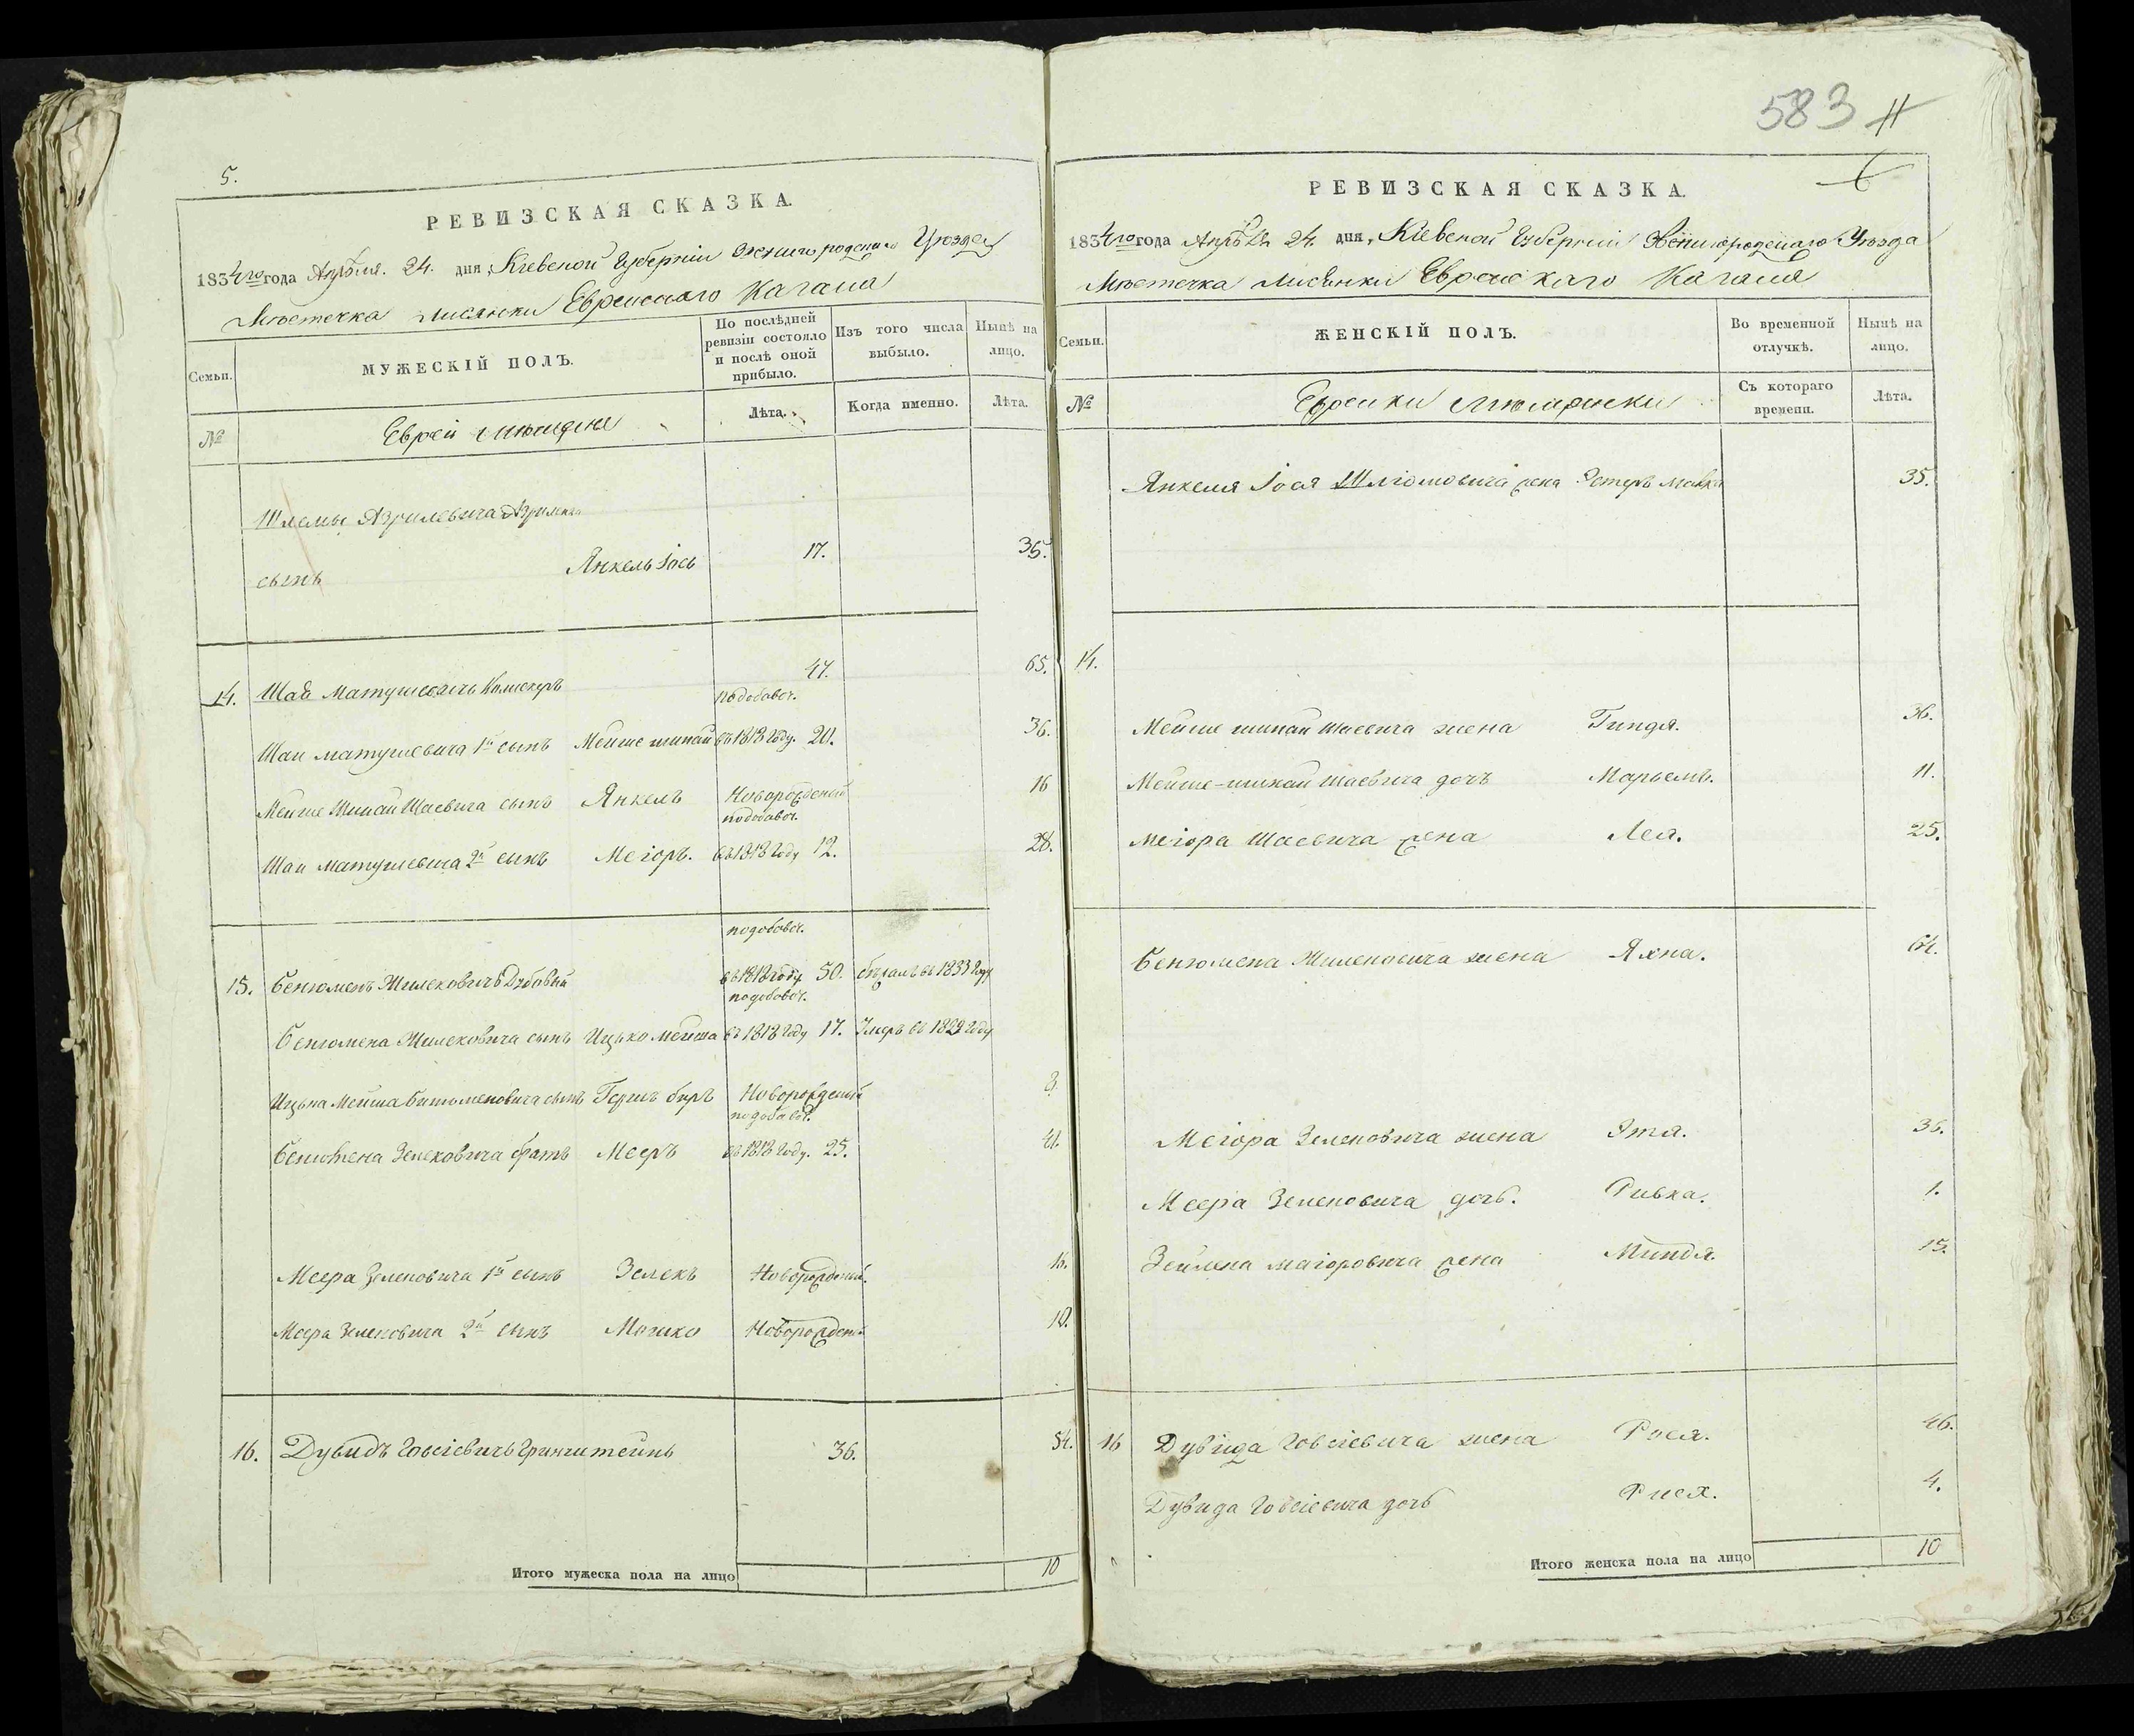 5.
РЕВИЗСКАЯ СКАЗКА.
1834го года Апреля. 24. дня, Кіевской Губерніи Звенигородскаго Уѣзда
Мѣстечка Лисянки Еврейскаго Кагала
Семьи.
МУЖЕСКІЙ ПОЛЪ.
По послѣдней ревизіи состояло и послѣ оной прибыло.
Изъ того числа выбыло.
Нынѣ на лицо.
№
Еврей мѣщане
Лѣта.
Когда именно.
Лѣта.
Шлемы Азрилевича
сынъ Янкель Іось 17. 35.
14. Шая Матушевичъ 47. 65.
подобавоч.
Шаи Матушевича 1й сынъ Мейше въ 1818 Году. 20. 36.
Мейше Шаевича сынъ Янкель Новорожденый 16
подобавоч.
Шаи Матушевича 2й сынъ Меіоръ. въ 1818 Году 12. 28.
подобавоч.
15. Бенюменъ въ 1818 Году 50. бѣжалъ въ 1833 Году
подобавоч.
Бенюмена сынъ Ицько Мейша въ 1818 Году 17. Умеръ въ 1829 Году
Ицька Мейша сынъ Герш беръ Новорожденый 8.
подобавоч.
Бенюмена Зелековича братъ Мееръ въ 1818 Году. 25. 41.
Меера Зелековича 1й сынъ Зелекъ Новорожденый. 16.
Меера Зелековича 2й сынъ Мошко Новорожденый 10.
16. Дувидъ Говсіевичъ Гринштейнъ 36. 54.
Итого мужеска пола на лицо 10
583
6
РЕВИЗСКАЯ СКАЗКА.
1834го года Апрѣля 24. дня, Кіевской Губерніи Звенигородскаго Уѣзда
Мѣстечка Лисянки Еврейскаго Кагала
Семьи.
ЖЕНСКІЙ ПОЛЪ.
Во временной отлучкѣ.
Нынѣ на лицо.
№
Еврейки мѣщанки
Съ котораго времени.
Лѣта.
Янкеля Іося Шліомовича жена Эстеръ Малка 35.
14.
Мейше Шаевича жена Гиндя. 36.
Мейше Шаевича дочъ Марьемъ. 11.
Меіора Шаевича жена Лея. 25.
Бенюмена жена Яхна. 64.
Меіора Зелековича жена Этя. 36.
Меера Зелековича дочь. Ривка. 1.
Зейлека Маіоровича жена Миндя. 15.
16 Дувида Говсіевича жена Рося. 46.
Дувида Говсіевича дочь Рися. 4.
Итого женска пола на лицо 10